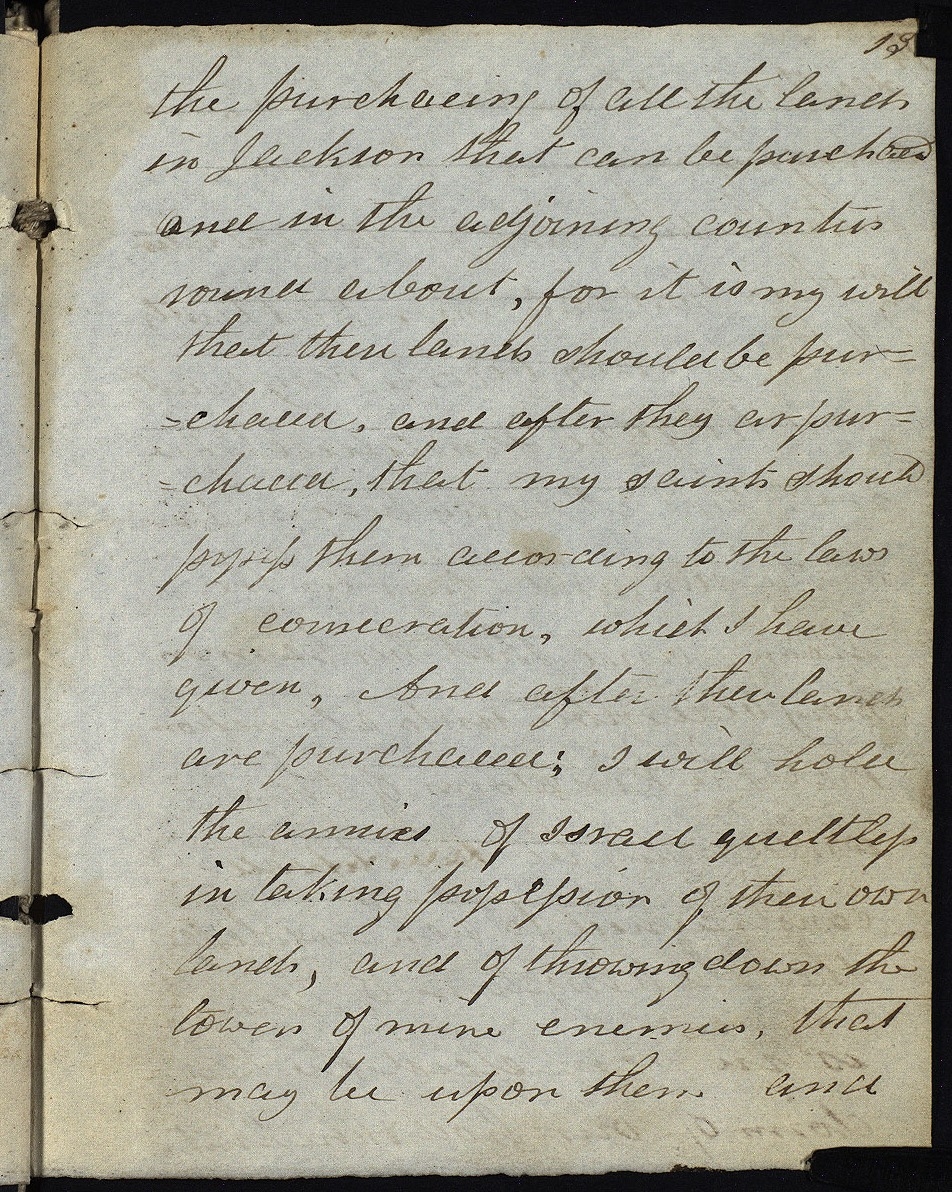 13
the purchasing of all the lands
in Jackson that can be purchased
and in the adjoining counties
round about, for it is my will
that these lands should be pur=
=chased, and after they ar pur=
=chased, that my saints should
possess them according to the laws
of consecration, which I have
given, And after these lands
are purchased; I will hold
the armies of Israel gueltless
in taking possession of their own
lands, and of throwing down the
towers of mine enemies, that
may be upon them and